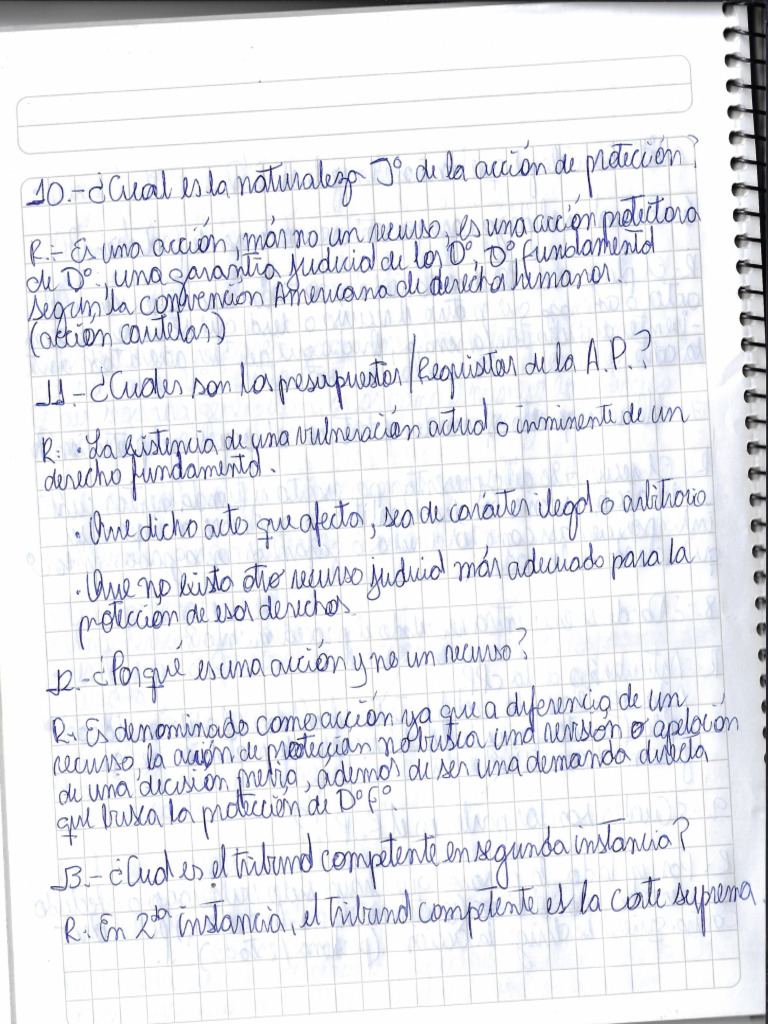 10.- ¿Cual es la naturaleza Jº de la acción de protección?
R.- Es una acción, más no un recurso, es una acción protectora
de Dº, una garantía judicial de los Dº, Dº fundamental
según la convención Americana de derechos humanos.
(acción cautelar)
11.- ¿Cuales son los presupuestos/Requisitos de la A.P.?
R: · La existencia de una vulneración actual o inminente de un
derecho fundamental.
· Que dicho acto que afecta, sea de carácter ilegal o arbitrario
· Que no exista otro recurso judicial más adecuado para la
protección de esos derechos
12.- ¿Porqué es una acción y no un recurso?
R.- Es denominado como acción ya que a diferencia de un
recurso, la acción de protección no busca una revisión o apelación
de una decisión previa, además de ser una demanda directa
que busca la protección de DºFº.
13.- ¿Cual es el tribunal competente en segunda instancia?
R: En 2da instancia, el tribunal competente es la corte suprema.